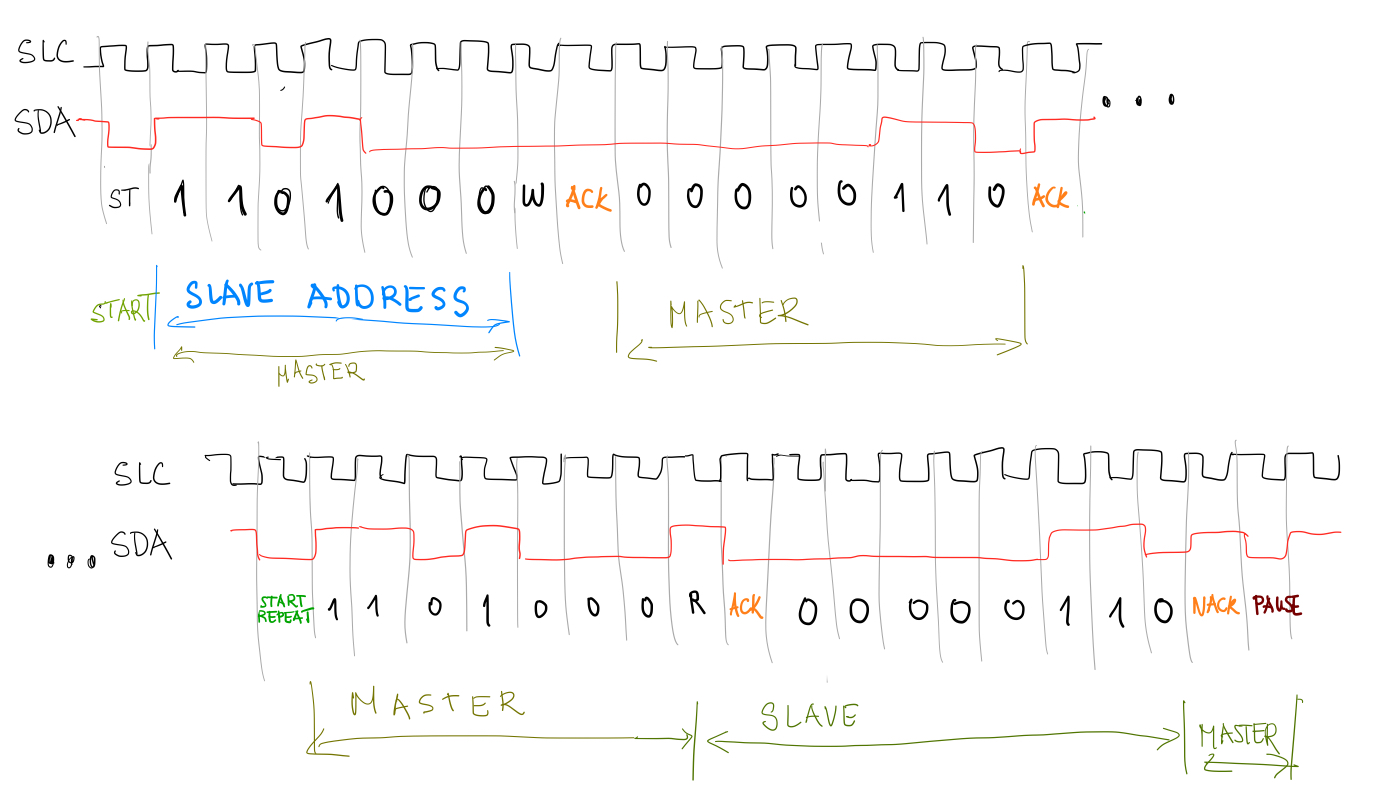 SLC
SDA
• • •
ST 1 1 0 1 0 0 0 W ACK 0 0 0 0 0 1 1 0 ACK
START SLAVE ADDRESS MASTER
MASTER
SLC
••• SDA
START REPEAT 1 1 0 1 0 0 0 R ACK 0 0 0 0 0 1 1 0 NACK PAUSE
MASTER SLAVE MASTER